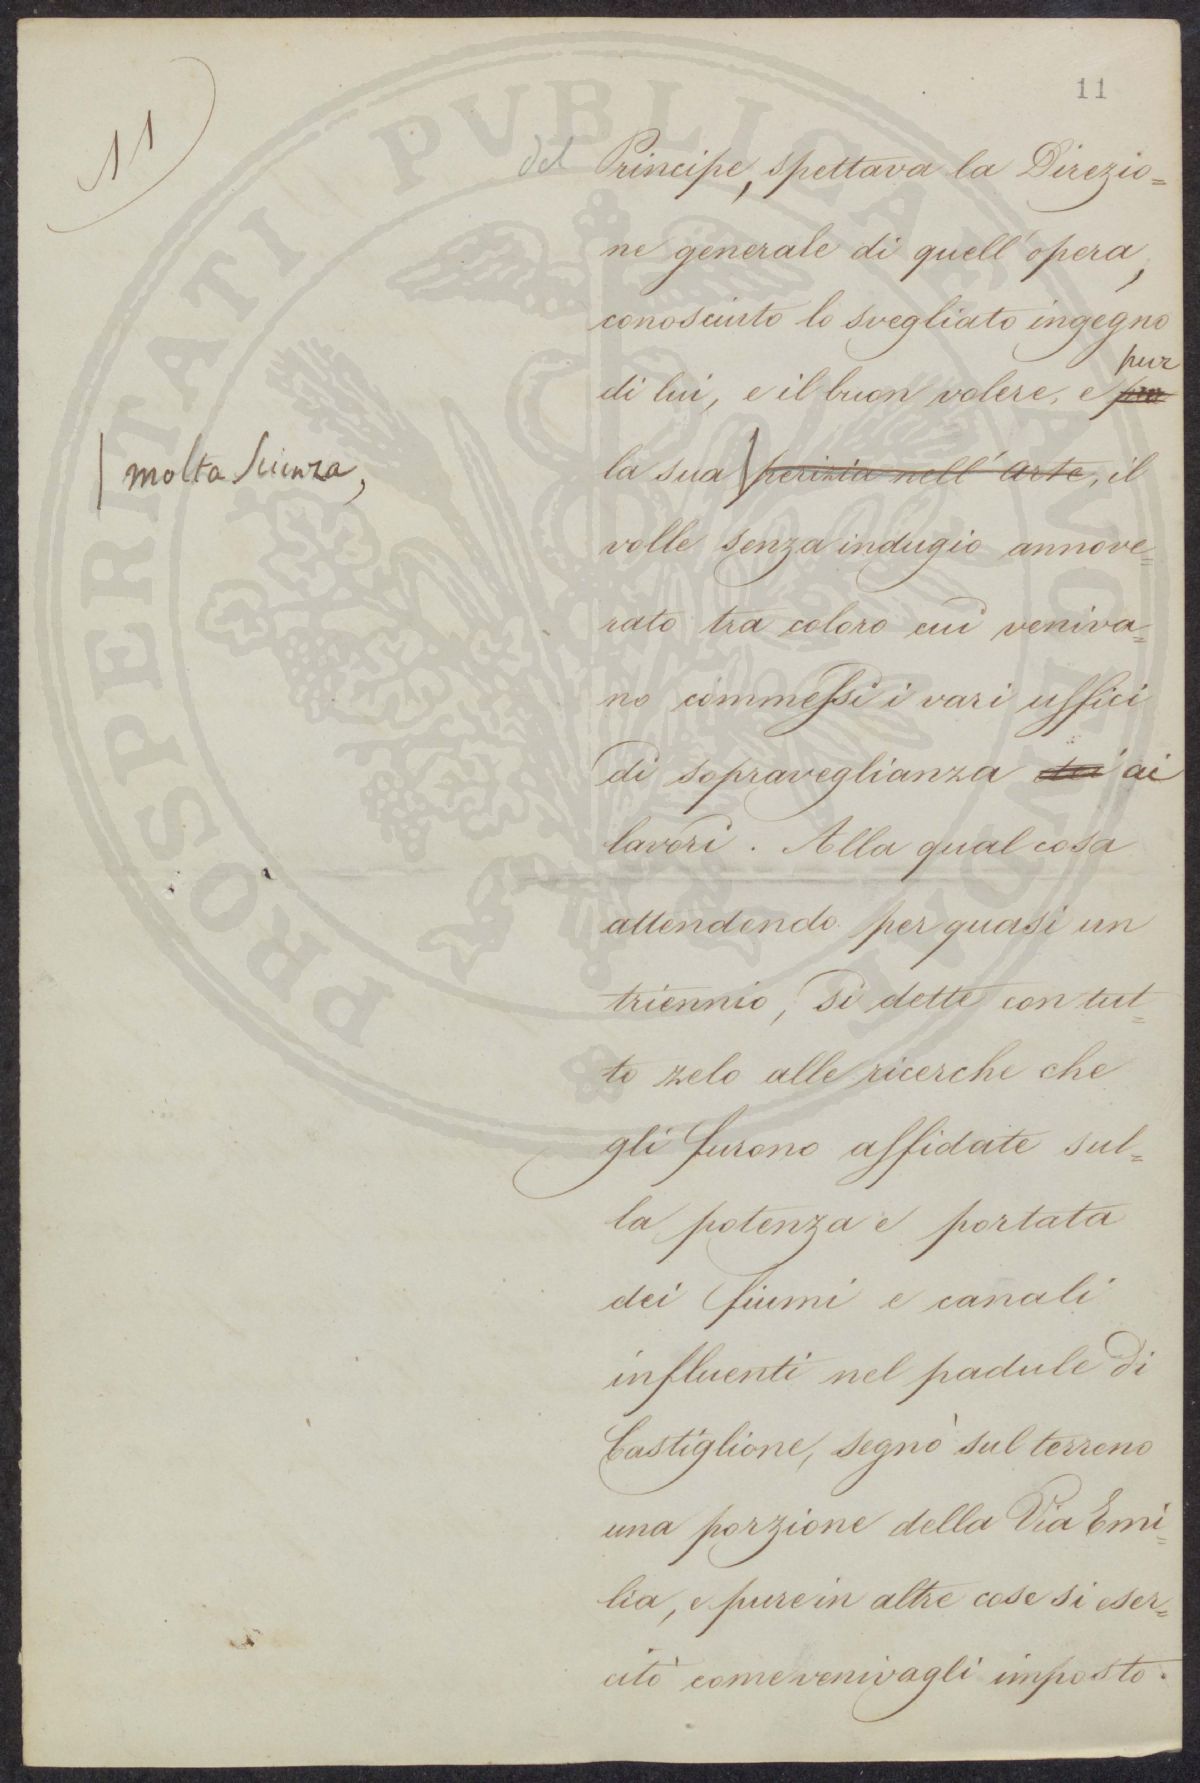 11
11
del Principe, spettava la Direzio=
ne generale di quell'opera,
conosciuto lo svegliato ingegno
pur
di lui, e il buon volere, e per
molta Scienza,
la sua perizia nell'arte, il
volle senza indugio annove=
rato tra coloro cui veniva=
no commessi i vari uffici
di sopraveglianza dei ai
lavori. Alla qual cosa
attendendo per quasi un
triennio, si dette con tut=
to zelo alle ricerche che
gli furono affidate sul=
la potenza e portata
dei fiumi e canali
influenti nel padule di
Castiglione, segnò sul terreno
una porzione della Via Emi=
lia, e pure in altre cose si eser=
citò come venivagli imposto.
PROSPERITATI PVBLICAE